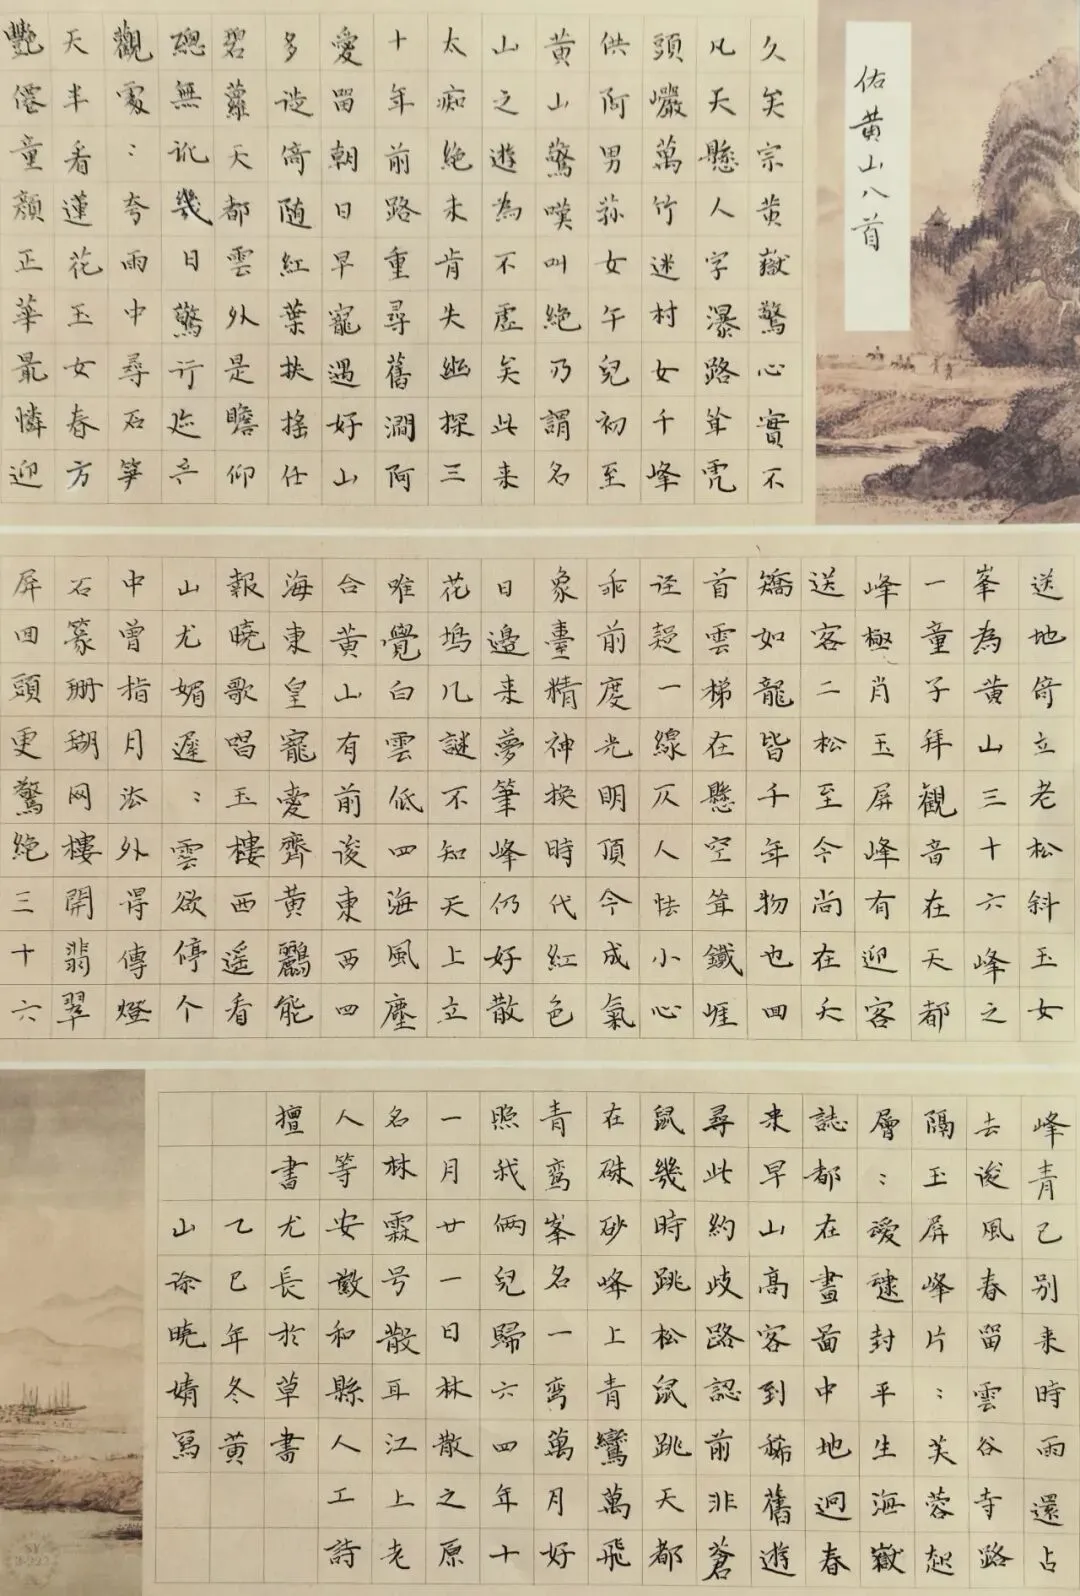 佑黄山八首
久矣宗黄嶽驚心實不
凡天懸人字瀑路聳虎
頭巖萬竹迷村女千峰
供阿男菥女午兒初至
黄山驚嘆叫絶乃謂名
山之遊為不虛矣此来
太痴絶未肯失幽探三
十年前路重尋舊澗阿
愛留朝日早寵遇好山
多倚随紅葉扶摇任
碧蘿天都雲外是瞻仰
總無訛幾日驚行迹
觀處:夸雨中尋石笋
天半看蓮花玉女春方
艷僊童顏正華最憐迎
送地倚立老松斜玉女
峯為黄山三十六峰之
一童子拜觀音在天都
峰極肖玉屏峰有迎客
送客二松至今尚在夭
矯如龍皆千年物也四
首雲梯在懸空聳鐵崕
迳超一線仄人怯小心
乖前度光明頂今成氣
象臺精神换時代紅色
日邊来夢筆峰仍好散
花塢几謎不知天上立
唯覺白雲低四海風塵
合黄山有前後東西四
海東皇寵愛齊黄鸝能
報曉歌唱玉樓西遥看
山尤媚遲:雲欲停个
中曾指月法外得傳燈
石篆珊瑚网樓開翡翠
屏回頭更驚絶三十六
峰青已别来時雨還占
去後風春留雲谷寺路
隔玉屏峰片:芙蓉起
層:靉靆封平生海嶽
誌都在畫啚中地迥春
来早山高客到稀舊遊
尋此約歧路認前非蒼
鼠幾時跳松鼠跳天都
在硃砂峰上青鸞萬飛
青鸾峯名一鸾萬月好
照我倆兒歸六四年十
一月廿一日林散之原
名林霖号散耳江上老
人等安徽和縣人工詩
擅書尤長於草書
乙巳年冬黄
山涂曉婧寫